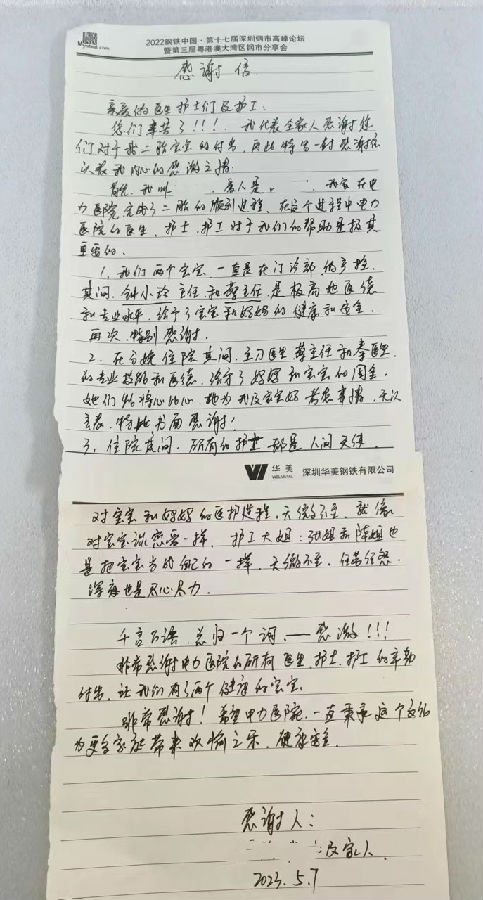 2022钢铁中国·第十七届深圳钢市高峰论坛
暨第三届粤港澳大湾区钢市分享会
感谢信
亲爱的医生护士们及护工:
您们辛苦了!!! 我代表全家人感谢您
们对于我二胎宝宝的付出,再此特写一封感谢信
以表我内心的感谢之情
首先,我叫 ,家人是 ,我家在电
力医院完成了二胎的顺利进程,在这个过程中电力
医院的医生,护士,护工对于我们的帮助是极其
重要的.
1.我们两个宝宝一直是在门诊部做产检
其间,钟小玲主任和蔡主任是极高的医德
和专业水平,给予了宝宝和妈妈的健康和安全
再次特别感谢.
2.在分娩住院其间,主刀医生蔡主任和秦医生
的专业技能和医德,给予了妈妈和宝宝的周全
她们将心比心
特此书面感谢!
3,住院其间,所有的护士都是人间天使
华美 深圳华美钢铁有限公司
对宝宝和妈妈的医护过程,无微不至,就像
对家宝 一样,护工大姐:
是把宝宝当成自己的一样,无微不至,任劳任怨
深夜也是尽心尽力.
千言万语总归一个词——感谢!!!
非常感谢电力医院的所有医生,护士,护工的辛勤
付出,让我们有了两个健康的宝宝
非常感谢!希望电力医院一直秉承这个文化
为更多家庭带来欢愉之乐,健康安全.
感谢人:
及家人
2023.5.7